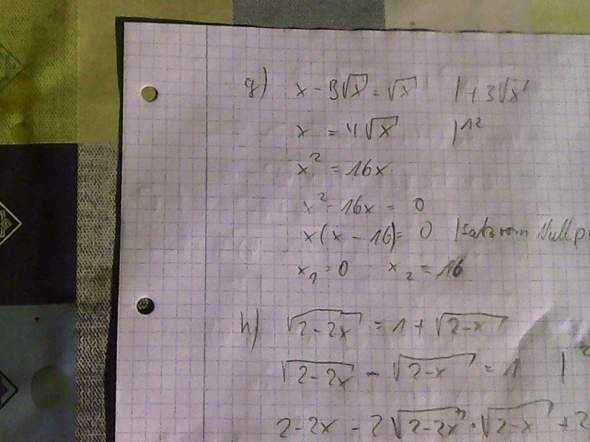 g) x - 3√x = √x | +3√x
x = 4√x |^2
x² = 16x
x² - 16x = 0
x(x - 16) = 0 | Satz vom Nullp
x₁ = 0 x₂ = 16
h) √(2-2x) = 1 + √(2-x)
√(2-2x) - √(2-x) = 1 | ²
2-2x - 2√(2-2x) · √(2-x) + 2